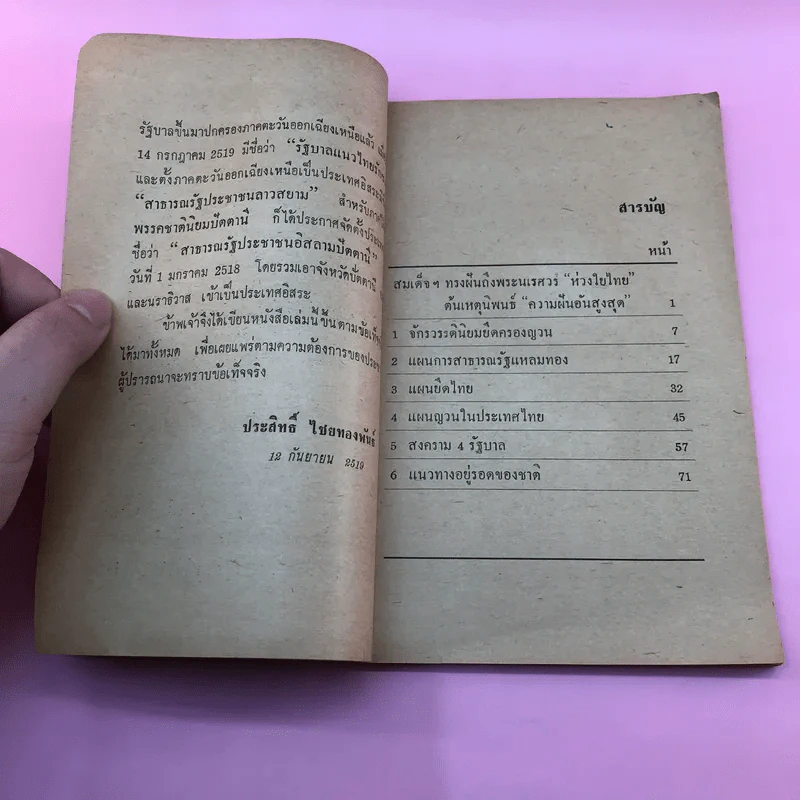 รัฐบาลขึ้นมาปกครองภาคตะวันออกเฉียงเหนือแล้ว
14 กรกฎาคม 2519 มีชื่อว่า “รัฐบาลแนวไทยรัก
และตั้งภาคตะวันออกเฉียงเหนือเป็นประเทศอิสระ
“สาธารณรัฐประชาชนลาวสยาม” สำหรับภาค
พรรคชาตินิยมปัตตานี ก็ได้ประกาศจัดตั้งประเทศ
ชื่อว่า “สาธารณรัฐประชาชนอิสลามปัตตานี”
วันที่ 1 มกราคม 2518 โดยรวมเอาจังหวัดปัตตานี
และนราธิวาส เข้าเป็นประเทศอิสระ
ข้าพเจ้าจึงได้เขียนหนังสือเล่มนี้ขึ้นตามข้อเท็จ
ได้มาทั้งหมด เพื่อเผยแพร่ตามความต้องการของประช
ผู้ปรารถนาจะทราบข้อเท็จจริง
ประสิทธิ์ ไชยทองพันธ์
12 กันยายน 2519
สารบัญ
หน้า
สมเด็จฯ ทรงฝันถึงพระนเรศวร “ห่วงใยไทย”
ต้นเหตุนิพนธ์ “ความฝันอันสูงสุด” 1
1 จักรวรรดินิยมยึดครองญวน 7
2 แผนการสาธารณรัฐแหลมทอง 17
3 แผนยึดไทย 32
4 แผนญวนในประเทศไทย 45
5 สงคราม 4 รัฐบาล 57
6 แนวทางอยู่รอดของชาติ 71